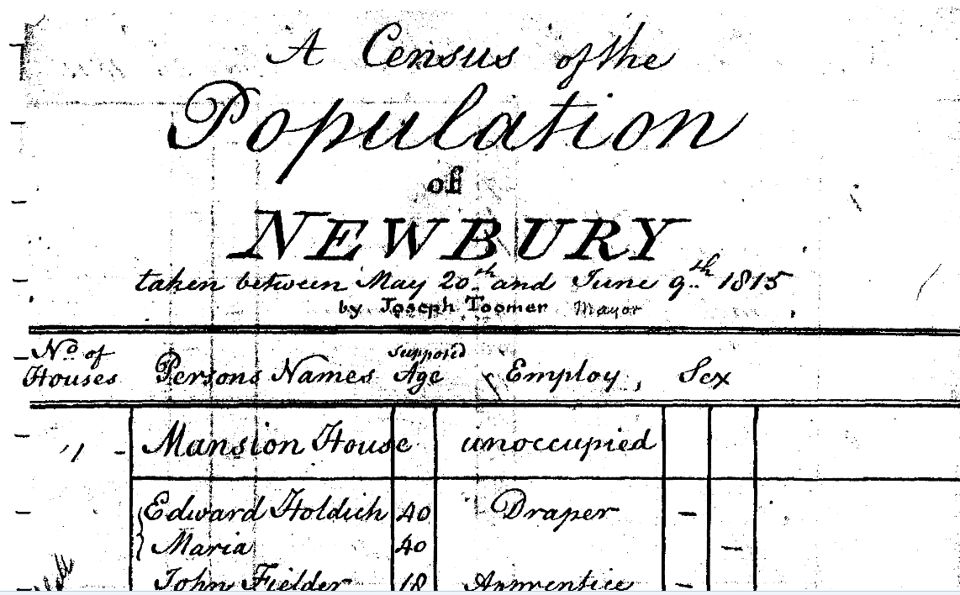 A Census of the
Population
of
NEWBURY
taken between May 20th and June 9th 1815
by Joseph Toomer Mayor
No. of Houses Persons Names Supposed Age Employ, Sex
1 - Mansion House unoccupied
Edward Holdich 40 Draper -
Maria 40 -
John Fielder 18 Apprentice -